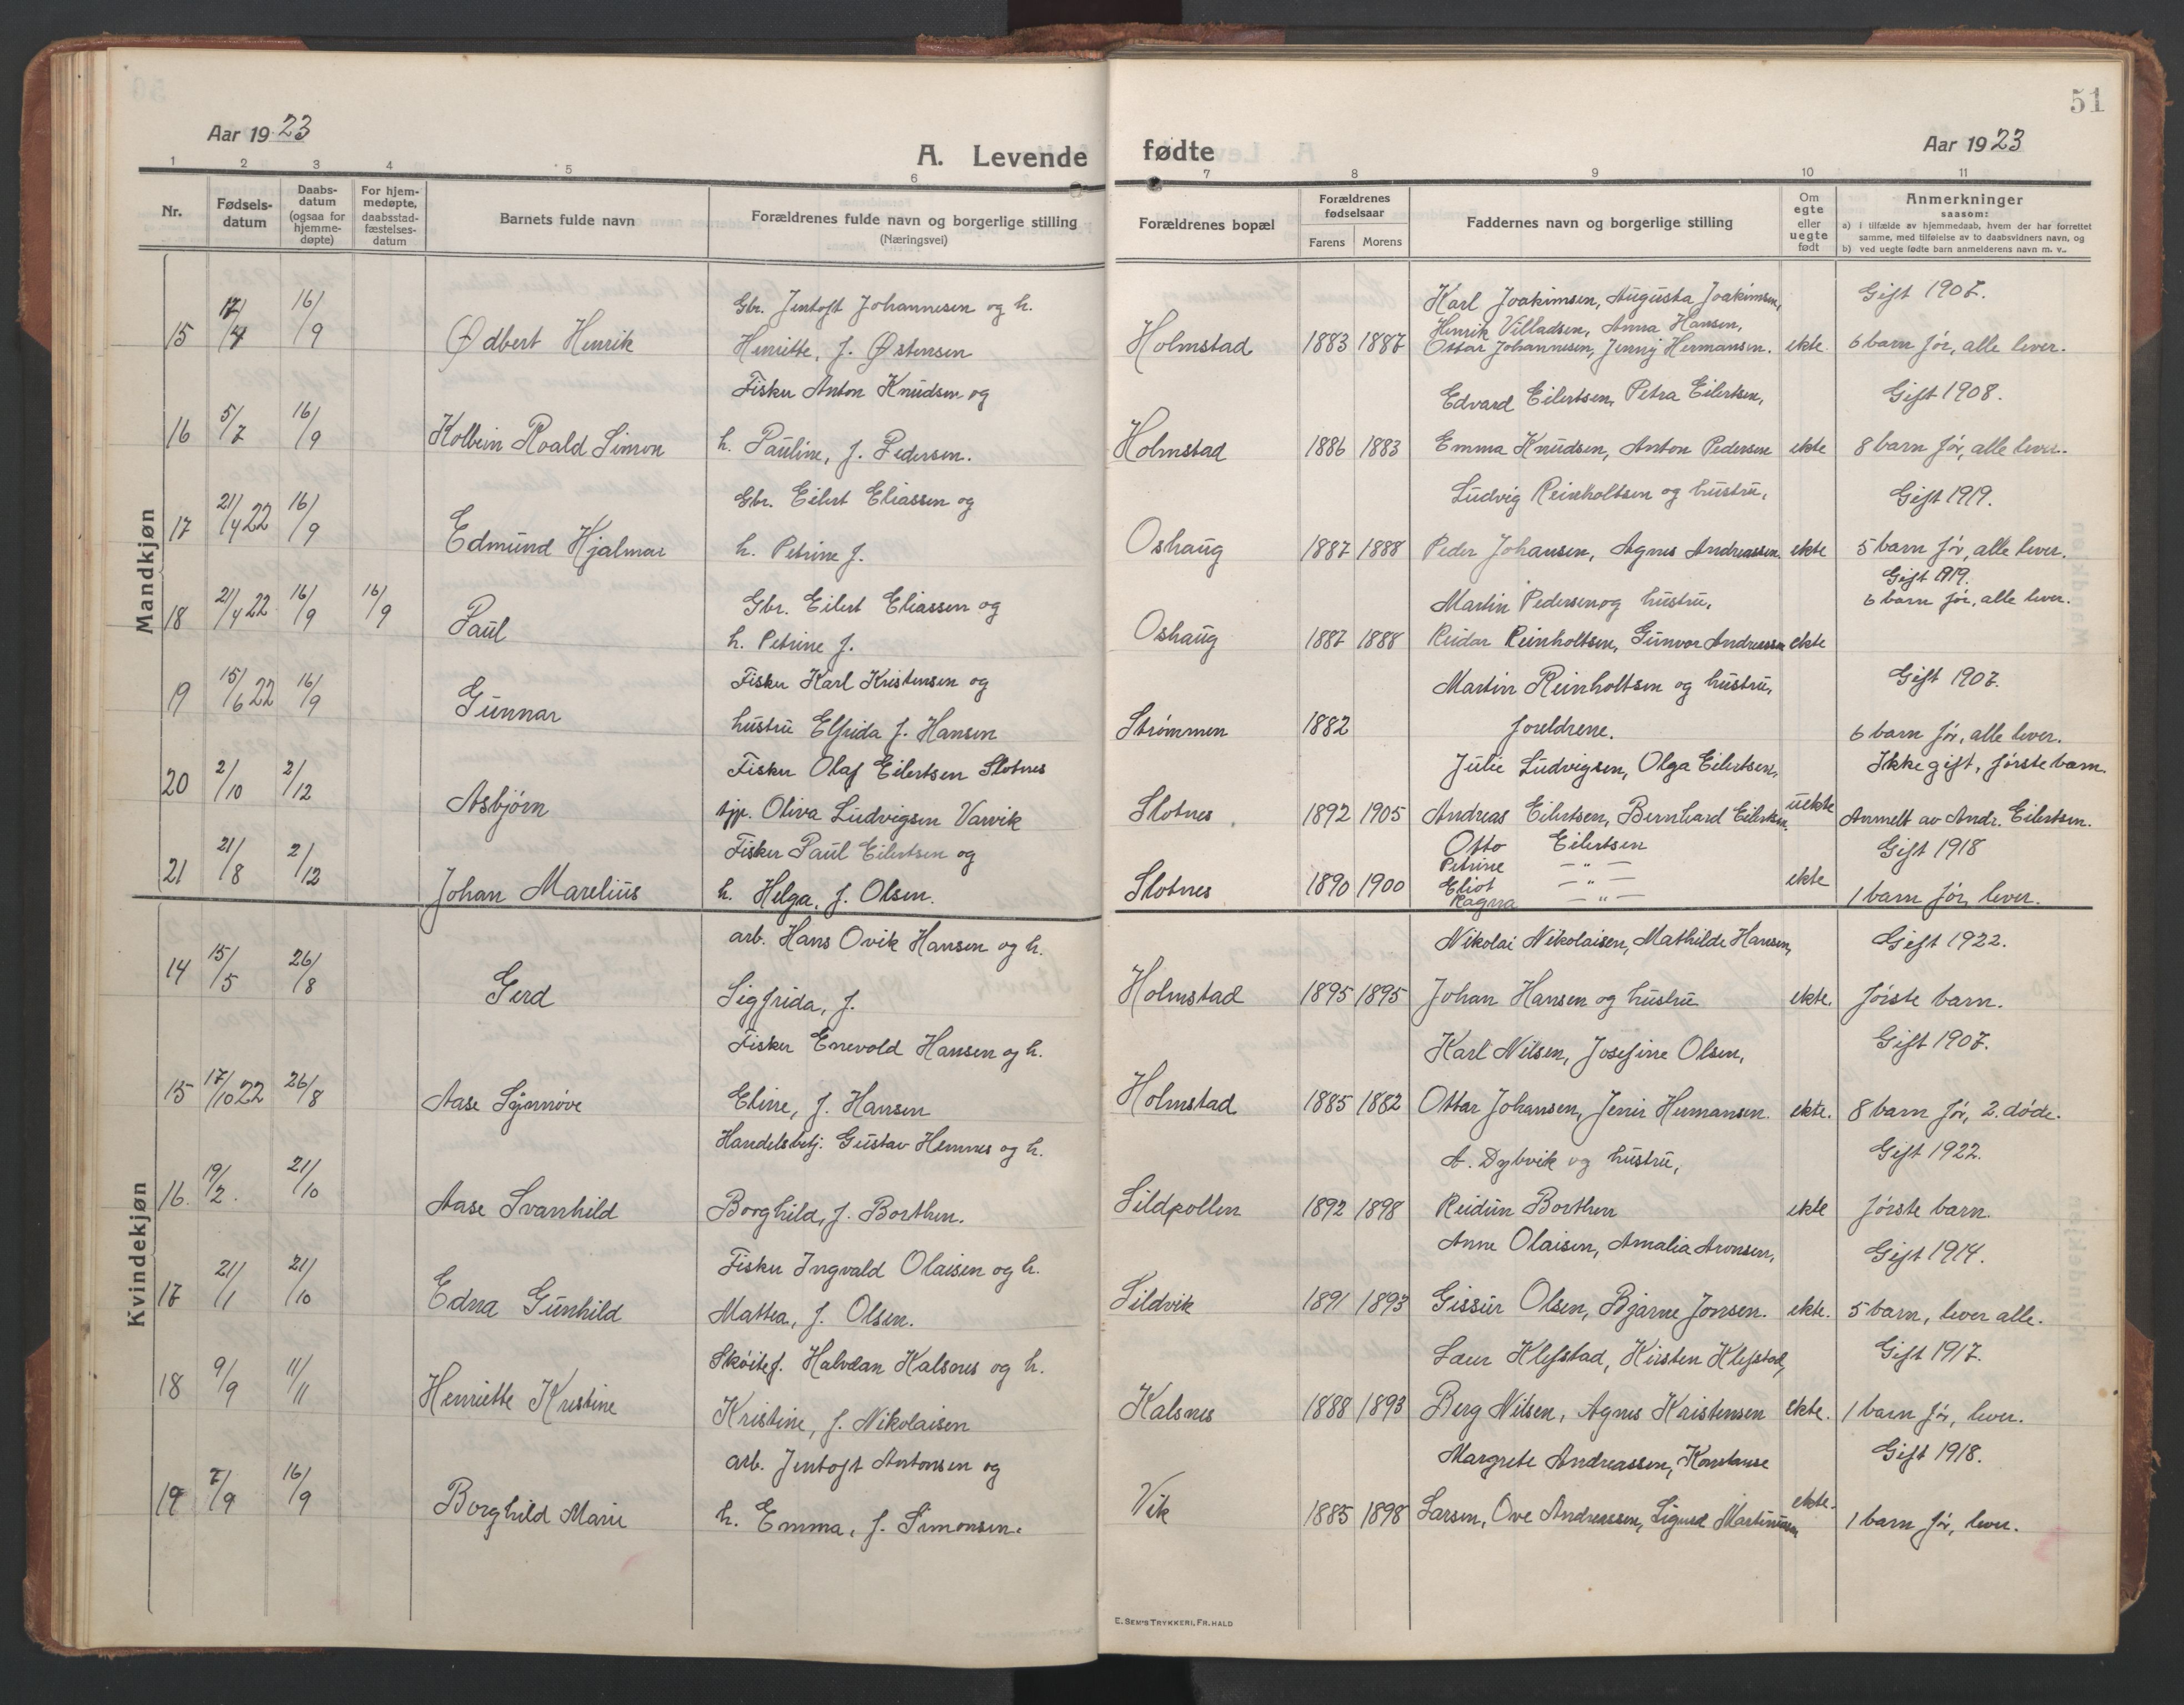 51
Aar 1923
A. Levende fødte
Aar 1923
1 2 3 4 5 6 7 8 9 10 11
Nr.
Fødsels-datum
Daabs-datum (ogsaa for hjemme-døpte)
For hjem-medøpte, daabsstad-fæstelses-datum
Barnets fulde navn
Forældrenes fulde navn og borgerlige stilling
(Næringsvei)
Forældrenes bopæl
Forældrenes fødselsaar
Farens Morens
Faddernes navn og borgerlige stilling
Om egte eller uegte født
Anmerkninger
saasom:
a) i tilfælde av hjemmedaab, hvem der har forrettet samme, med tilføielse av to daabsvidners navn, og
b) ved uegte fødte barn anmelderens navn m. v.
Mandkjøn
Gbr. Jentoft Johannesen og h. Karl Joakimsen, Augusta Joakimsen, Gift 1907.
Henrik Villadsen, Anna Hansen,
15 17/4 16/9 Ødbert Henrik Henriette, f. Østensen Holmstad 1883 1887 Ottar Johannesen, Jenny Hermansen. ekte. 6 barn før, alle lever.
Fisker Anton Knudsen og Edvard Eilertsen, Petra Eilertsen, Gift 1908.
16 5/7 16/9 Kolbein Roald Simon h. Pauline, f. Pedersen. Holmstad 1886 1883 Emma Knudsen, Anton Pedersen ekte 8 barn før, alle lever.
Gbr. Eilert Eliassen og Ludvig Reinholtsen og hustru, Gift 1919.
17 21/4 22 16/9 Edmund Hjalmar h. Petrine f. Oshaug 1887 1888 Peder Johansen, Agnes Andreassen. ekte 5 barn før, alle lever.
Gbr. Eilert Eliassen og Martin Pedersen og hustru, Gift 1919. 6 barn før, alle lever.
18 21/4 22 16/9 16/9 Paul h. Petrine f. Oshaug 1887 1888 Reidar Reinholtsen, Gunvor Andreassen ekte
Fisker Karl Kristensen og Martin Reinholtsen og hustru, Gift 1907.
19 15/6 22 16/9 Gunnar hustru Elfrida f. Hansen Strømmen 1882 foreldrene. 6 barn før, alle lever.
Fisker Olaf Eilertsen Slotnes Julie Ludvigsen, Olga Eilertsen, Ikke gift, første barn.
20 2/10 2/12 Asbjørn tjp. Oliva Ludvigsen Varvik Slotnes 1892 1905 Andreas Eilertsen, Bernhard Eilertsen. uekte Anmelt av Andr. Eilertsen.
Fisker Paul Eilertsen og Otto Eilertsen Gift 1918
Petrine — " —
21 21/8 2/12 Johan Marelius h. Helga, f. Olsen. Slotnes 1890 1900 Eliot — " — ekte 1 barn før, lever.
Ragna — " —
Kvindekjøn
arb. Hans Ovik Hansen og h. Nikolai Nikolaisen, Mathilde Hansen, Gift 1922.
14 15/5 26/8 Gerd Sigfrida, f. Holmstad 1895 1895 Johan Hansen og hustru ekte. første barn.
Fisker Enevold Hansen og h. Karl Nilsen, Josefine Olsen, Gift 1907.
15 17/10 22 26/8 Aase Synnøve Eline, f. Hansen Holmstad 1885 1882 Ottar Johansen, Jenni Hermansen. ekte. 8 barn før, 2. døde.
Handelsbetj. Gustav Hemnes og h. A. Dybvik og hustru, Gift 1922.
16. 19/2. 21/10 Aase Svanhild Borghild, f. Borthen. Sildpollen 1892 1898 Reidun Borthen ekte første barn.
Fisker Ingvald Olaisen og h. Anne Olaisen, Amalia Aronsen, Gift 1914.
17 21/1 21/10 Edna Gunhild Mattea, f. Olsen. Sildvik 1891 1893 Gissur Olsen, Bjarne Jonsen. ekte. 5 barn, lever alle.
Skøitef. Halvdan Kalsnes og h. Laur Klefstad, Kirsten Klefstad, Gift 1917.
18 9/9 11/11 Henriette Kristine Kristine, f. Nikolaisen Kalsnes 1888 1893 Berg Nilsen, Agnes Kristensen ekte. 1 barn før, lever.
arb. Jentoft Antonsen og Margrete Andreassen, Konstanse Gift 1918.
19 7/9 16/9 Borghild Marie h. Emma, f. Simonsen. Vik 1885 1898 Larsen, Ove Andreassen, Sigurd Martinussen ekte. 1 barn før, lever.
E. SEM'S TRYKKERI, FR.HALD